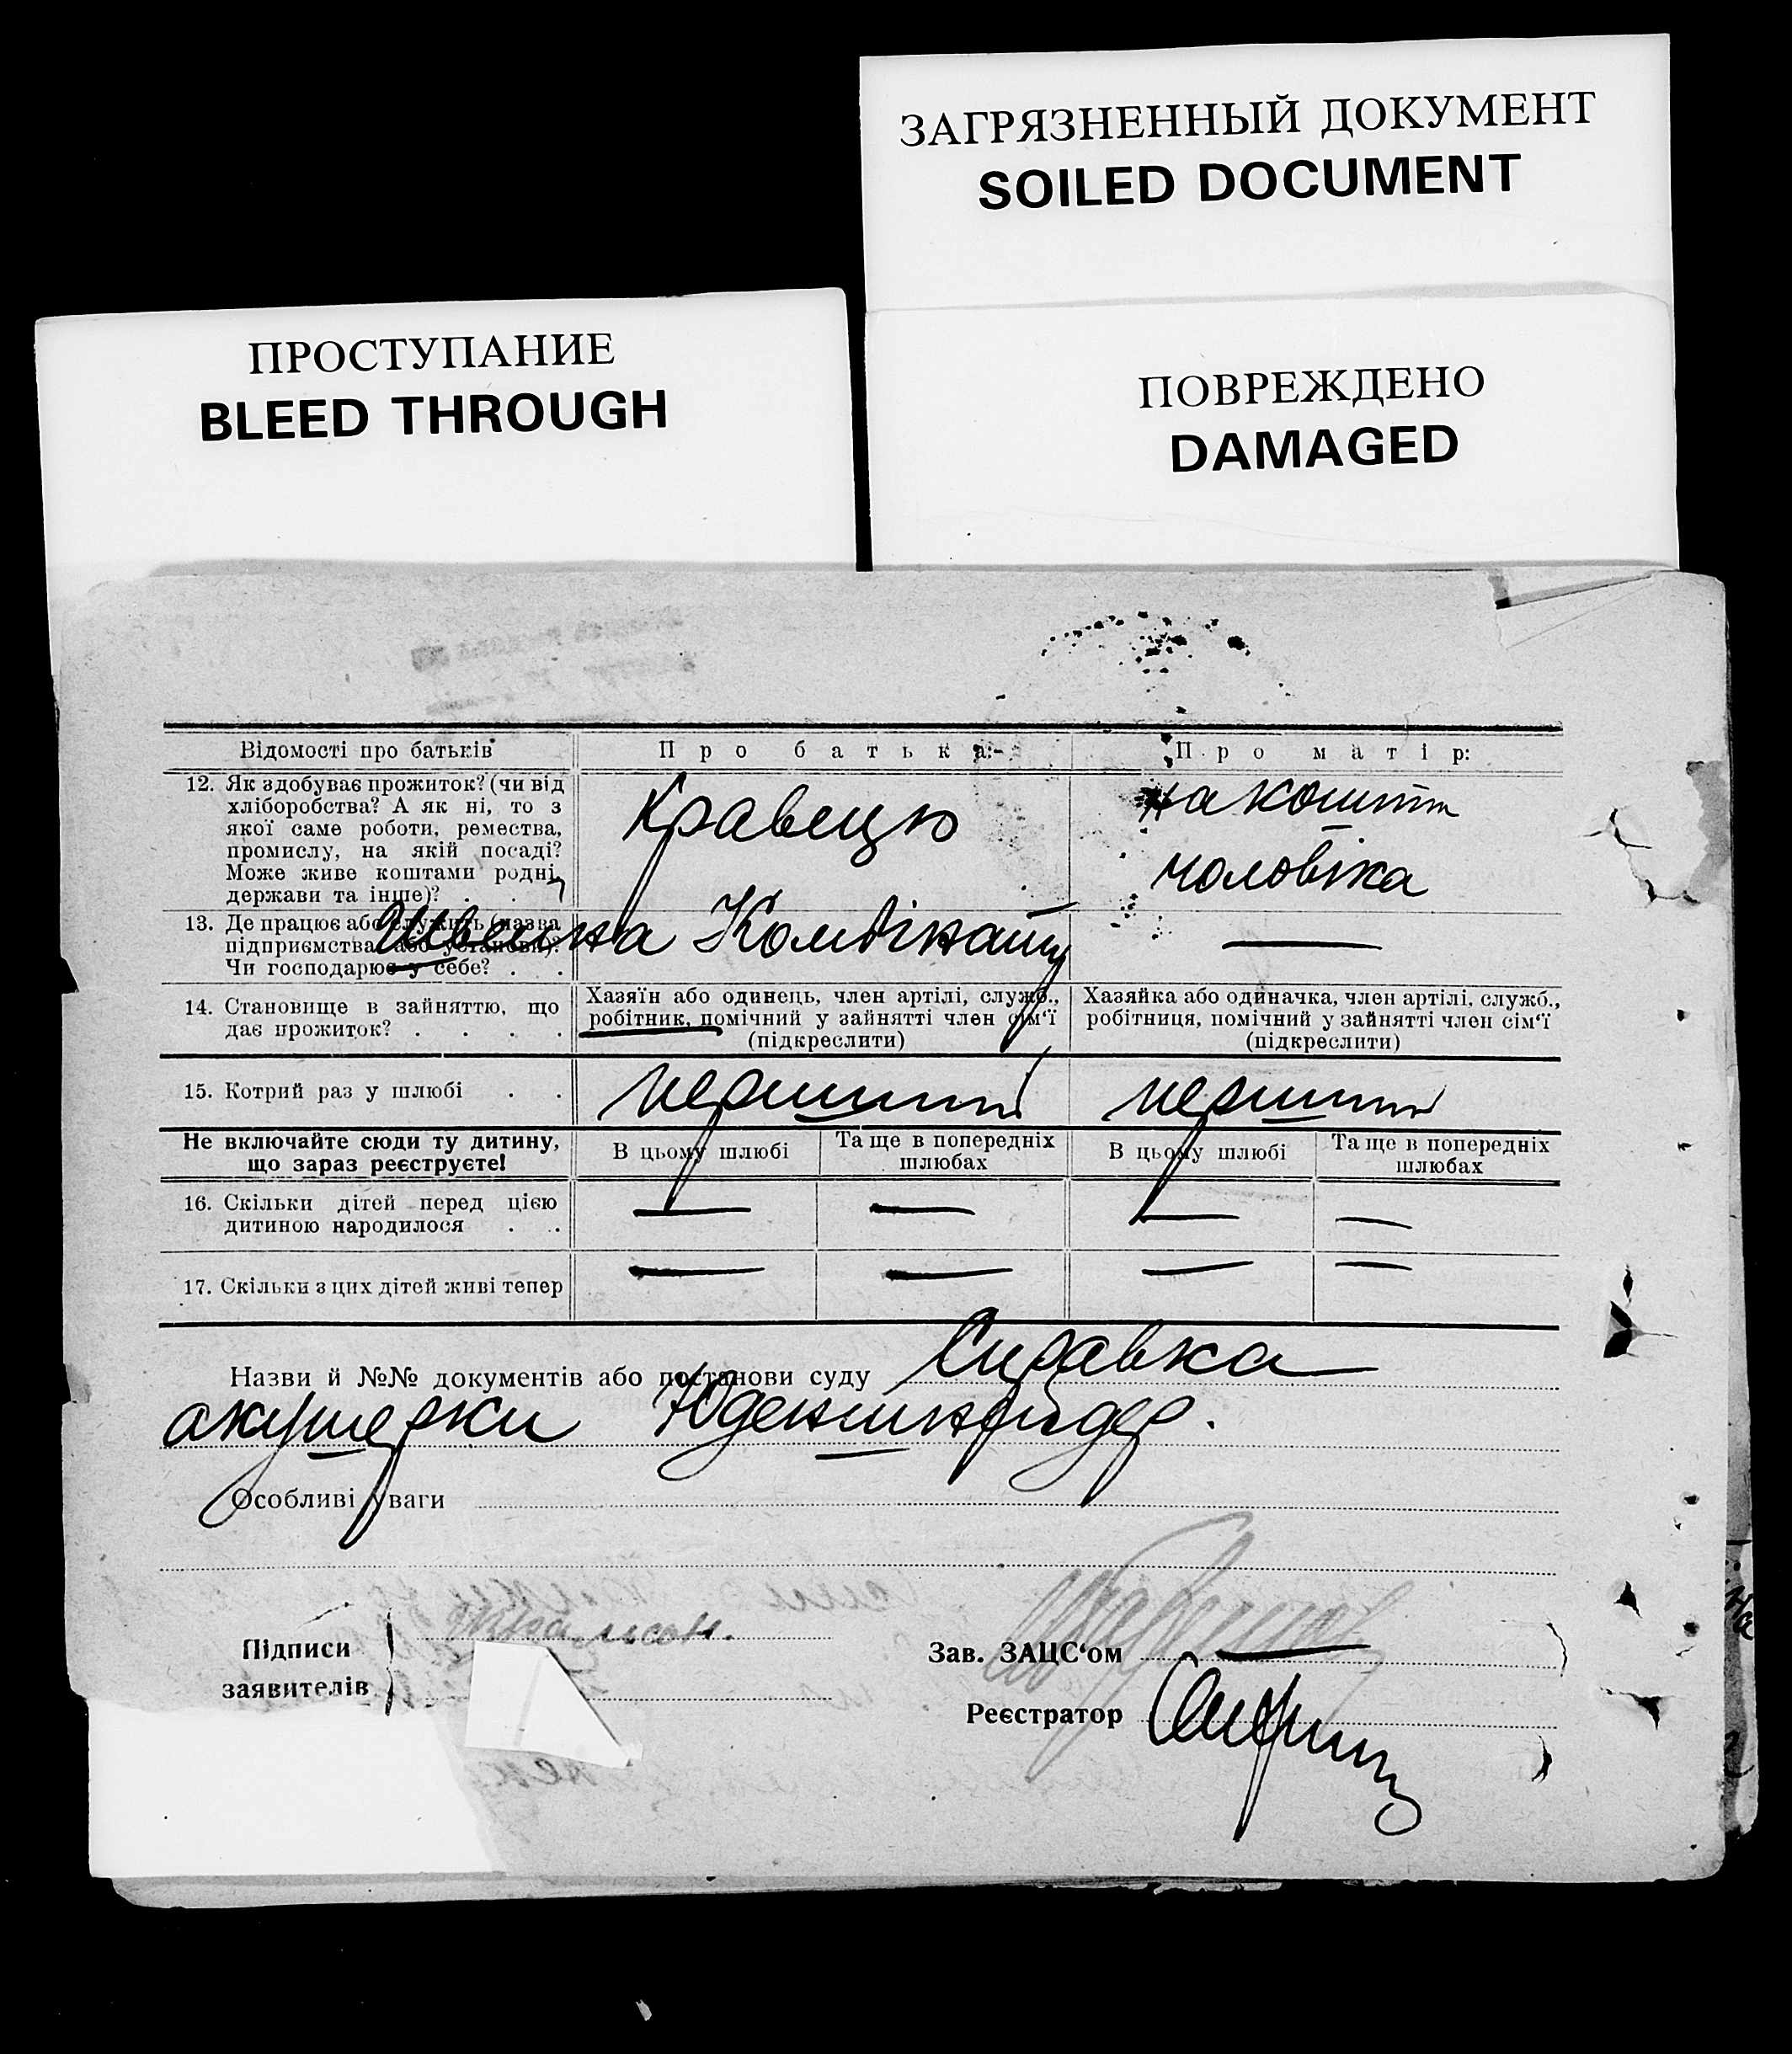 ЗАГРЯЗНЕННЫЙ ДОКУМЕНТ
SOILED DOCUMENT
ПРОСТУПАНИЕ
BLEED THROUGH
ПОВРЕЖДЕНО
DAMAGED
Відомості про батьків
Про батька:
Про матір:
12. Як здобуває прожиток? (чи від
хліборобства? А як ні, то з
якої саме роботи, ремества,
промислу, на якій посаді?
Може живе коштами родні,
держави та інше)? . .
Кравецю
на кошти
чоловіка
13. Де працює або служить (назва
підприємства або установи)?
Чи господарює у себе? . .
Швейна Комбінату
—
14. Становище в зайняттю, що
дає прожиток? . . . .
Хазяїн або одинець, член артілі, служб.,
робітник, помічний у зайнятті член сім'ї
(підкреслити)
Хазяйка або одиначка, член артілі, служб.,
робітниця, помічний у зайнятті член сім'ї
(підкреслити)
15. Котрий раз у шлюбі . .
перший
перший
Не включайте сюди ту дитину,
що зараз реєструєте!
В цьому шлюбі
Та ще в попередніх
шлюбах
В цьому шлюбі
Та ще в попередніх
шлюбах
16. Скільки дітей перед цією
дитиною народилося . .
— — — —
17. Скільки з цих дітей живі тепер
— — — —
Назви й №№ документів або постанови суду Справка
акушерки
Особливі уваги
Підписи
заявителів
Зав. ЗАЦС'ом —
Реєстратор